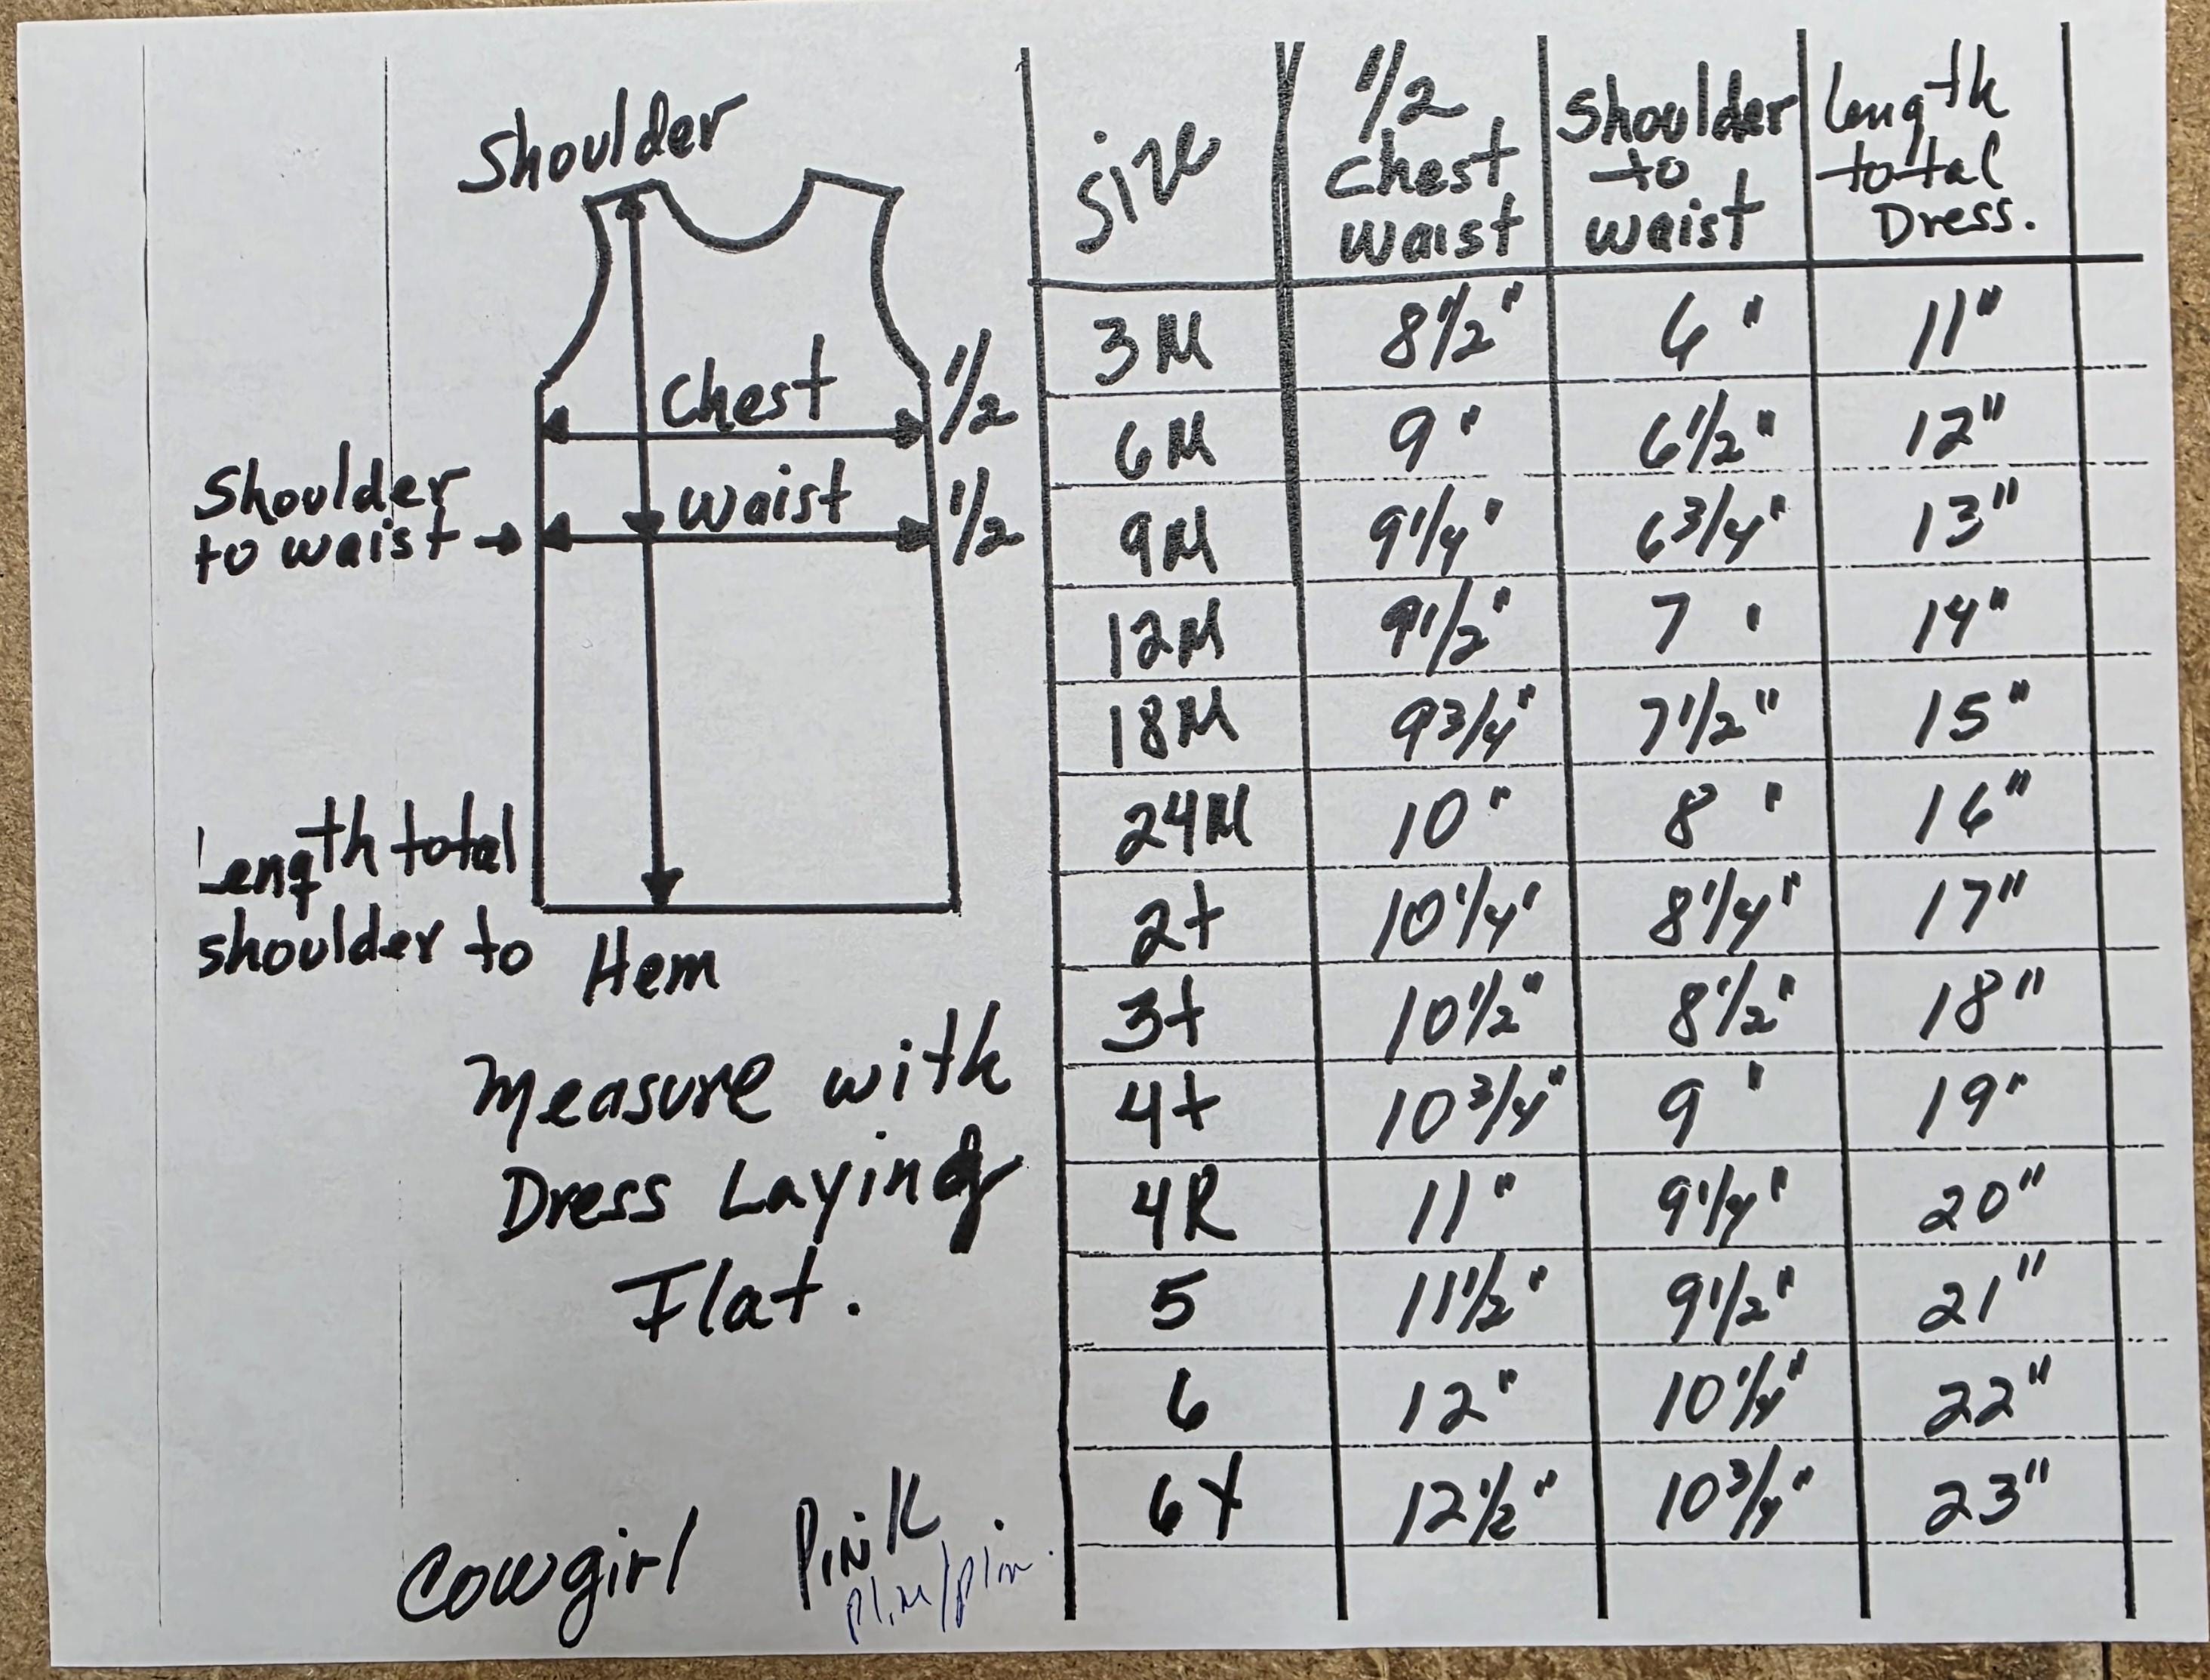 Shoulder
Chest 1/2
Waist 1/2
Shoulder
to waist →
Length total
shoulder to Hem
Measure with
Dress Laying
Flat.
Cowgirl Pink
Size 1/2 Chest waist Shoulder to waist Length total Dress.
3M 8 1/2" 6" 11"
6M 9" 6 1/2" 12"
9M 9 1/4" 6 3/4" 13"
12M 9 1/2" 7 ' 14"
18M 9 3/4" 7 1/2" 15"
24M 10" 8 ' 16"
2t 10 1/4' 8 1/4" 17"
3t 10 1/2" 8 1/2" 18"
4t 10 3/4" 9 ' 19"
4R 11" 9 1/4" 20"
5 11 1/2" 9 1/2" 21"
6 12" 10 1/4" 22"
6X 12 1/2" 10 3/4" 23"